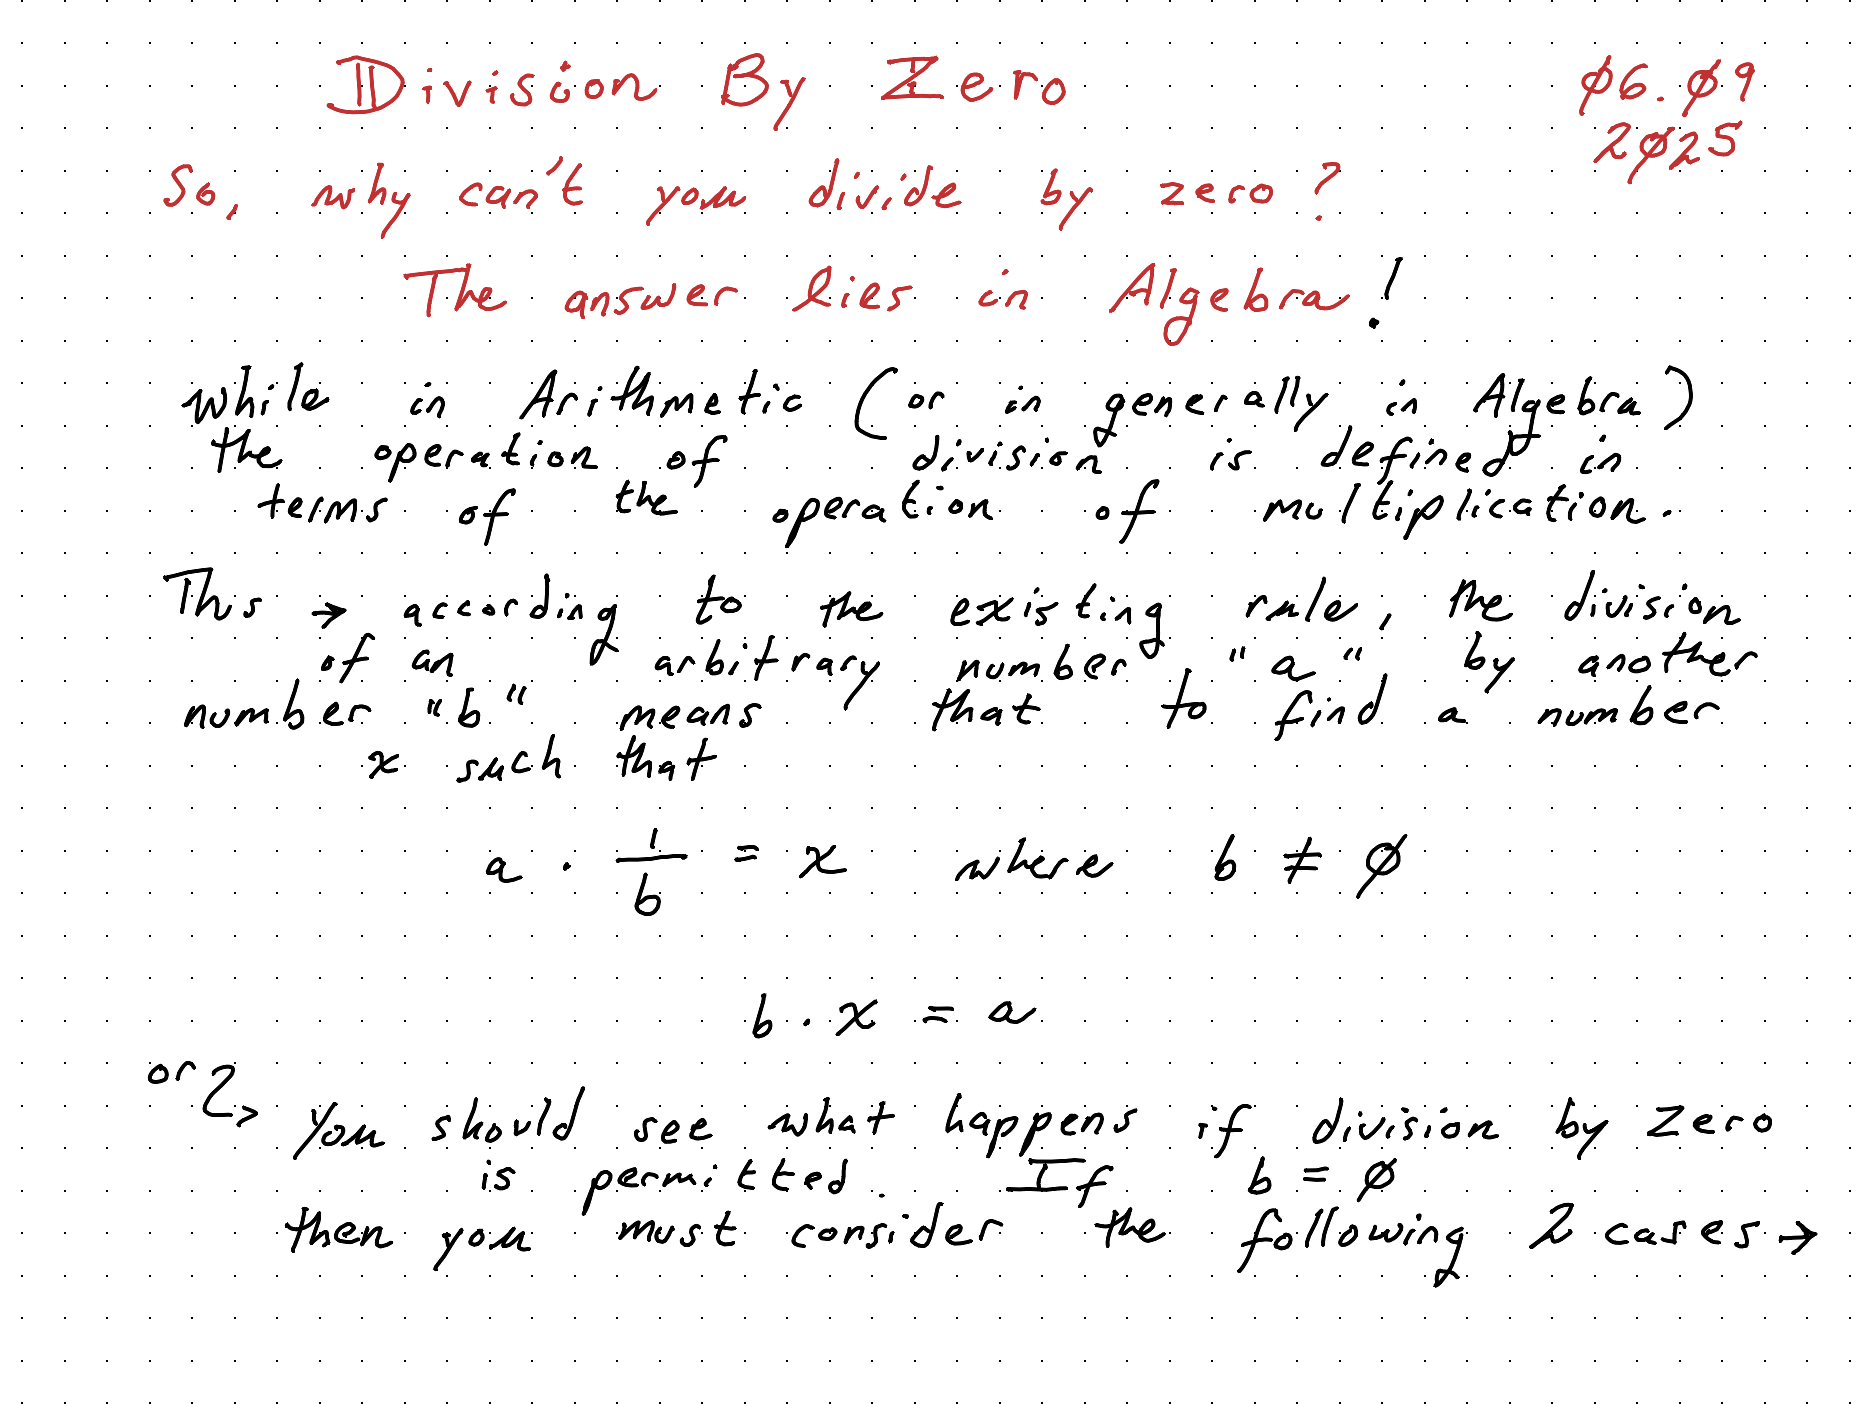 Division By Zero
06.09
2025
So, why can't you divide by zero?
The answer lies in Algebra!
while in Arithmetic (or in generally in Algebra)
the operation of division is defined in
terms of the operation of multiplication.
This → according to the existing rule, the division
of an arbitrary number "a" by another
number "b" means that to find a number
x such that
a · 1/b = x where b ≠ 0
b · x = a
or
You should see what happens if division by zero
is permitted. If b = 0
then you must consider the following 2 cases →